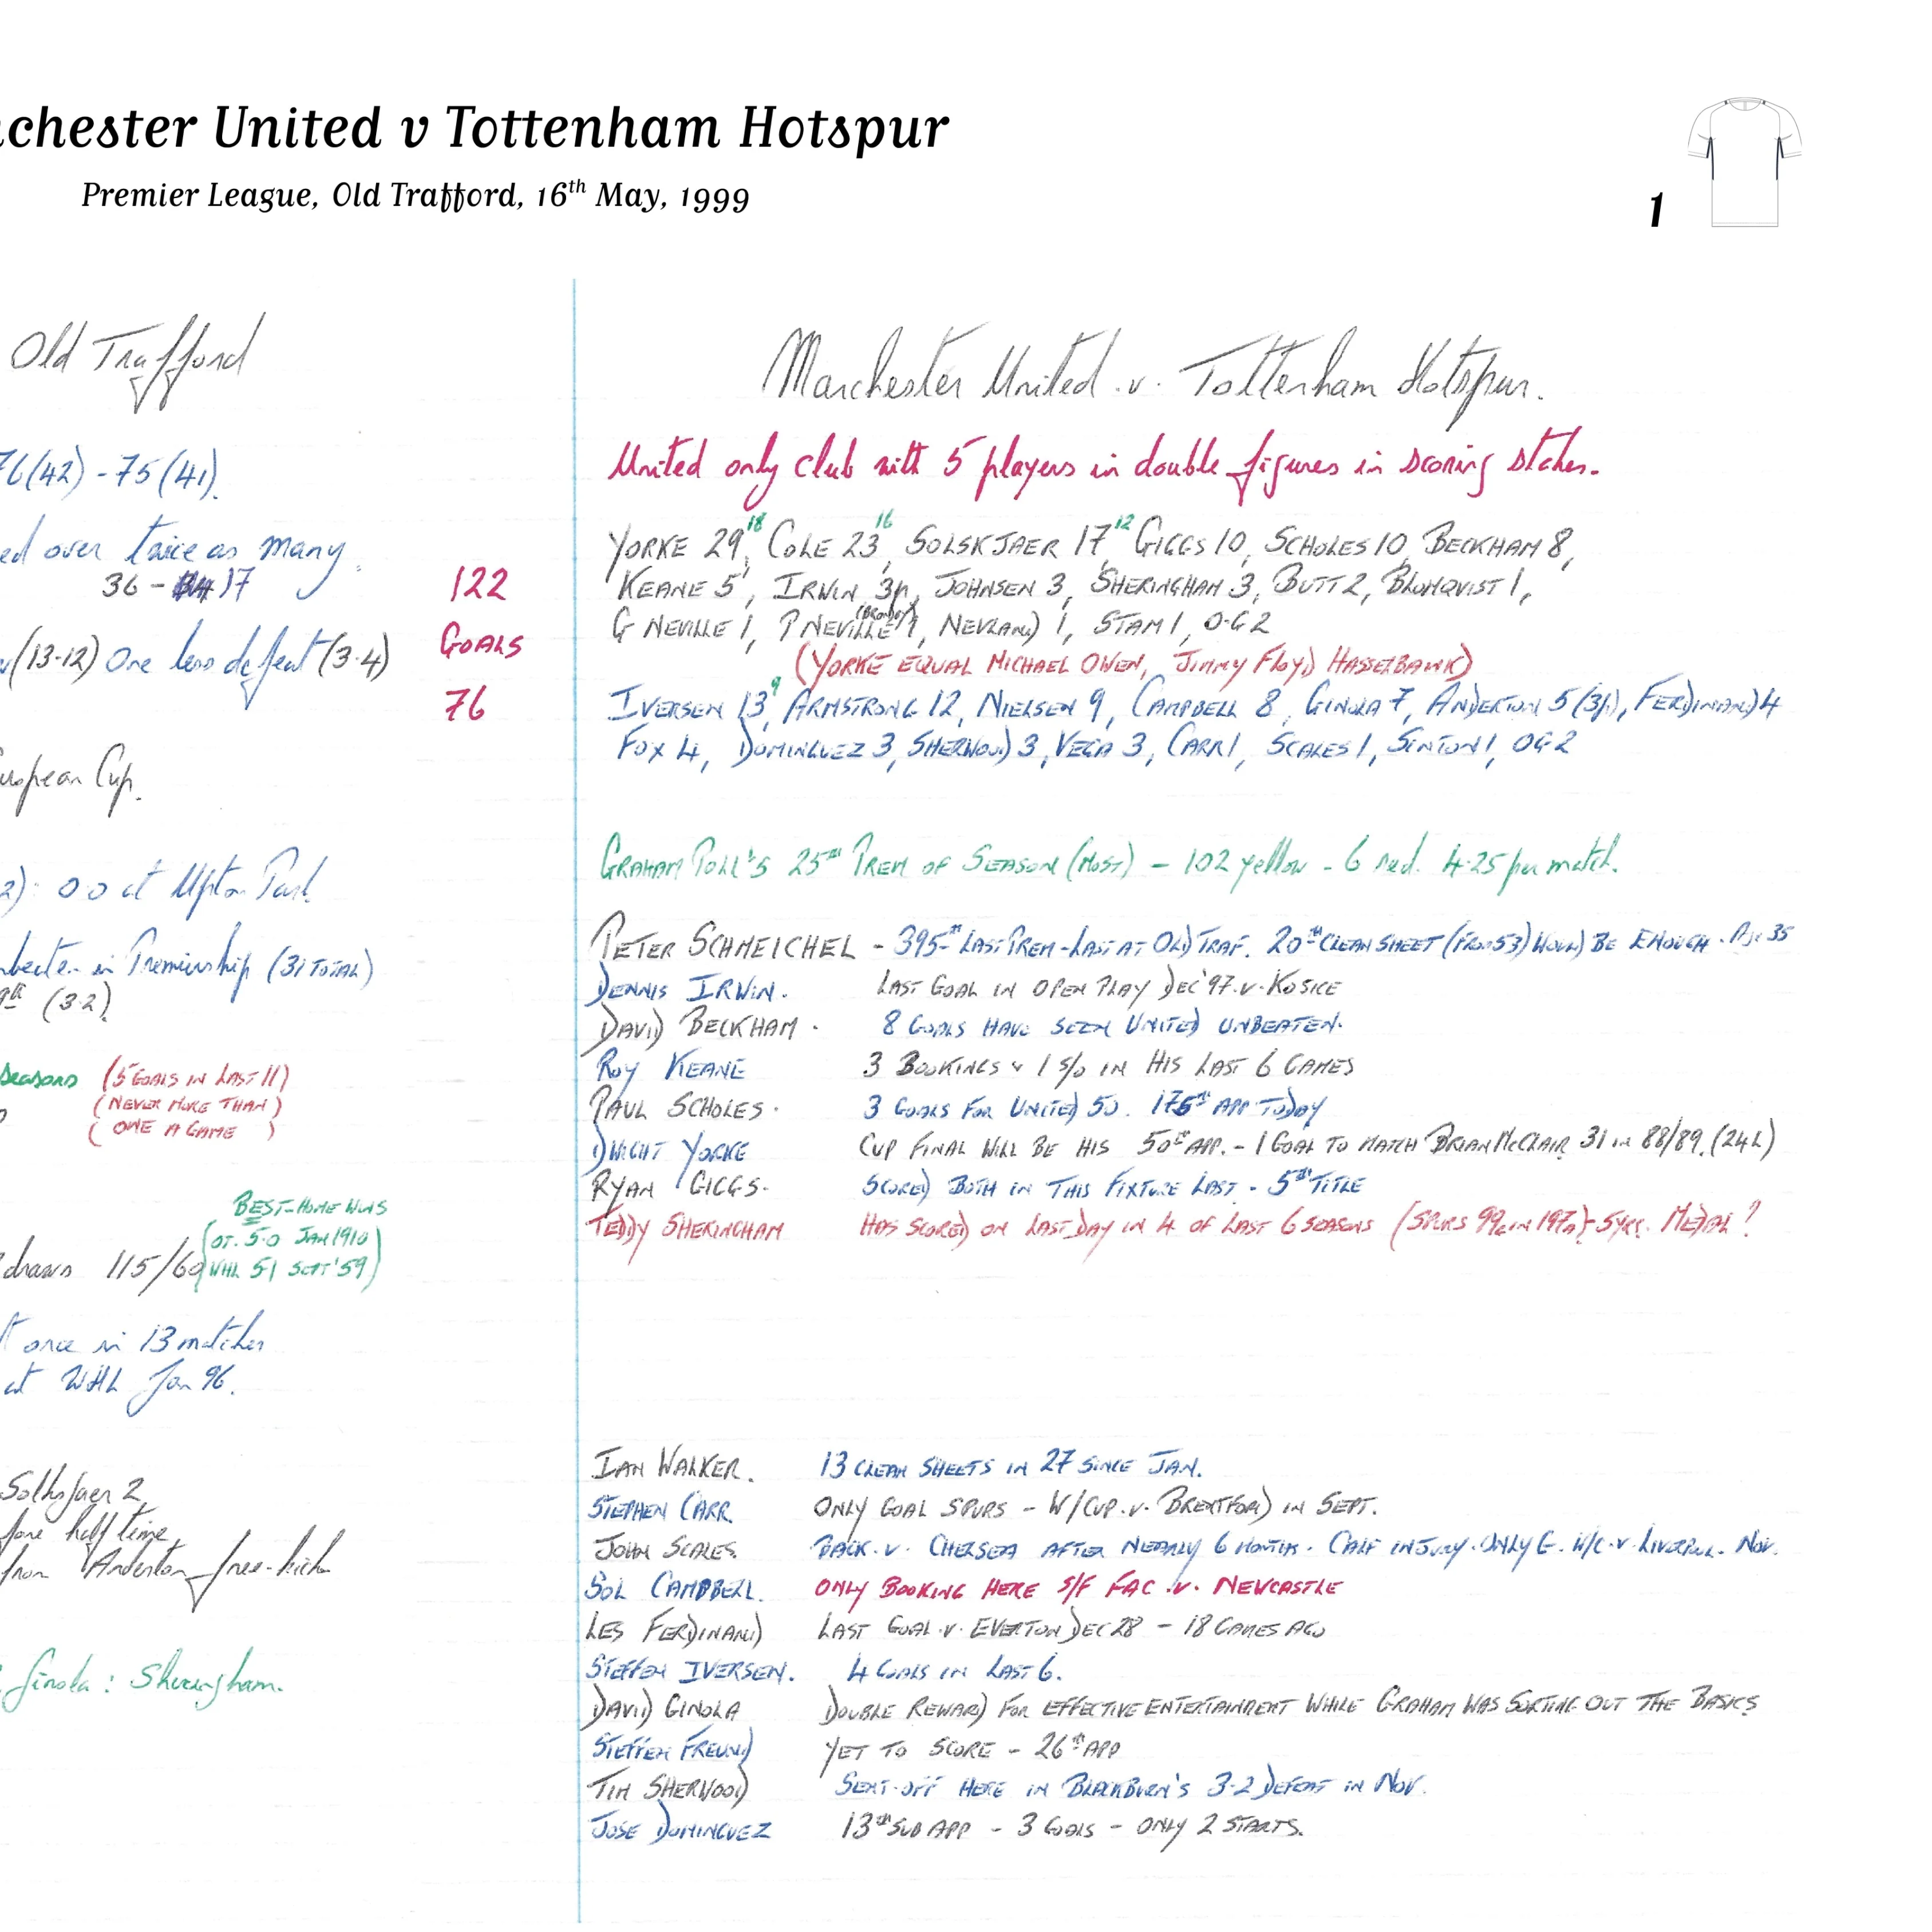 chester United v Tottenham Hotspur
Premier League, Old Trafford, 16th May, 1999
1
Old Trafford
76(42) - 75(41).
ed over twice as many.
36 - 17
(13-12) One less defeat (3-4)
uropean Cup.
2): 0-0 at Upton Park
unbeaten in Premiership (31 TOTAL)
(3-2)
seasons (5 GOALS IN LAST 11)
(NEVER MORE THAN)
( ONE A GAME )
BEST-HOME WINS
(OT. 5-0 JAN 1910)
draws 115/60 (WHL 5-1 SEPT '59)
once in 13 matches
at WHL Jan 96.
Solksjaer 2,
fore half time,
from Anderton free-kick
Ginola : Sheringham.
122
GOALS
76
Manchester United .v. Tottenham Hotspur.
United only club with 5 players in double figures in scoring stakes.
YORKE 29 18, COLE 23 16, SOLSKJAER 17 12, GIGGS 10, SCHOLES 10, BECKHAM 8,
KEANE 5, IRWIN 3p, JOHNSEN 3, SHERINGHAM 3, BUTT 2, BLOMQVIST 1,
G NEVILLE 1, P NEVILLE 1, NEVLAND 1, STAM 1, O.G 2
(YORKE EQUAL MICHAEL OWEN, JIMMY FLOYD HASSELBAINK)
IVERSEN 13 9, ARMSTRONG 12, NIELSEN 9, CAMPBELL 8, GINOLA 7, ANDERTON 5 (3p), FERDINAND 4
FOX 4, DOMINGUEZ 3, SHERWOOD 3, VEGA 3, CARR 1, SCALES 1, SINTON 1, OG 2
GRAHAM POLL'S 25TH PREM OF SEASON (MOST) - 102 yellow - 6 red. 4.25 per match.
PETER SCHMEICHEL - 395TH LAST PREM - LAST AT OLD TRAF. 20TH CLEAN SHEET (FROM 53) WOULD BE ENOUGH. Age 35
DENNIS IRWIN. LAST GOAL IN OPEN PLAY DEC '97 .v. KOSICE
DAVID BECKHAM. 8 GOALS HAVE SEEN UNITED UNBEATEN.
ROY KEANE 3 BOOKINGS & 1 S/O IN HIS LAST 6 GAMES
PAUL SCHOLES. 3 GOALS FOR UNITED 50. 175TH APP TODAY
DWIGHT YORKE CUP FINAL WILL BE HIS 50TH APP. - 1 GOAL TO MATCH BRIAN McCLAIR 31 in 88/89. (24 L)
RYAN GIGGS. SCORED BOTH IN THIS FIXTURE LAST - 5TH TITLE
TEDDY SHERINGHAM HAS SCORED ON LAST DAY IN 4 OF LAST 6 SEASONS (SPURS 99 in 197a) - 5 yrs. MEDAL?
IAN WALKER. 13 CLEAN SHEETS IN 27 SINCE JAN.
STEPHEN CARR ONLY GOAL SPURS - W/CUP .v. BRENTFORD IN SEPT.
JOHN SCALES. BACK .v. CHELSEA AFTER NEARLY 6 MONTHS. CALF INJURY. ONLY G. W/C .v. LIVERPOOL. NOV.
SOL CAMPBELL. ONLY BOOKING HERE S/F FAC .v. NEWCASTLE
LES FERDINAND LAST GOAL .v. EVERTON DEC 28 - 18 GAMES AGO
STEFFEN IVERSEN. 4 GOALS IN LAST 6.
DAVID GINOLA DOUBLE REWARD FOR EFFECTIVE ENTERTAINMENT WHILE GRAHAM WAS SORTING OUT THE BASICS
STEFFEN FREUND YET TO SCORE - 26TH APP
TIM SHERWOOD SENT-OFF HERE IN BLACKBURN'S 3-2 DEFEAT IN NOV.
JOSE DOMINGUEZ 13TH SUB APP - 3 GOALS - ONLY 2 STARTS.